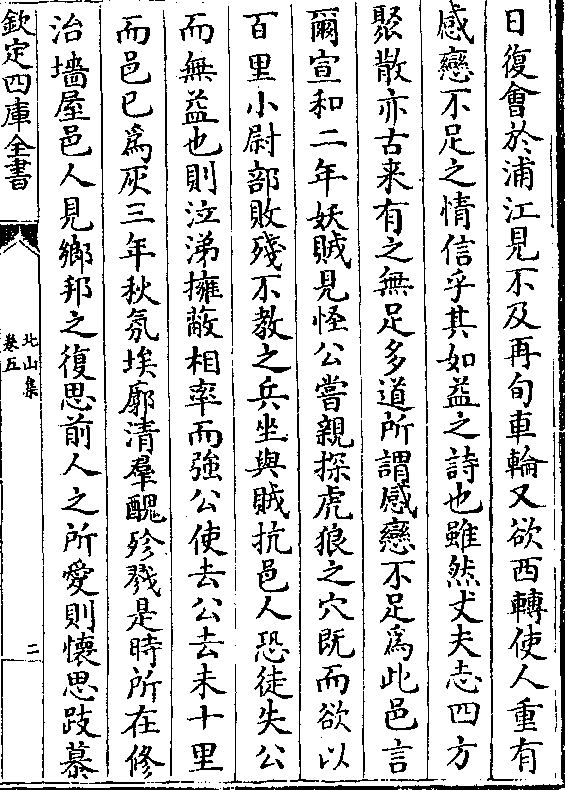 日復會於浦江見不及再旬車輪又欲西轉使人重有
感戀不足之情信乎其如益之詩也雖然丈夫志四方
聚散亦古来有之無足多道所謂感戀不足為此邑言
爾宣和二年妖賊見怪公嘗親探虎狼之穴既而欲以
百里小尉部敗殘不教之兵坐與賊抗邑人恐徒失公
而無益也則泣涕擁蔽相率而強公使去公去未十里
而邑已為灰三年秋氛埃廓清羣醜殄戮是時所在修
治墻屋邑人見鄉邦之復思前人之所愛則懷思跂慕
欽定四庫全書
北山集
卷五
二